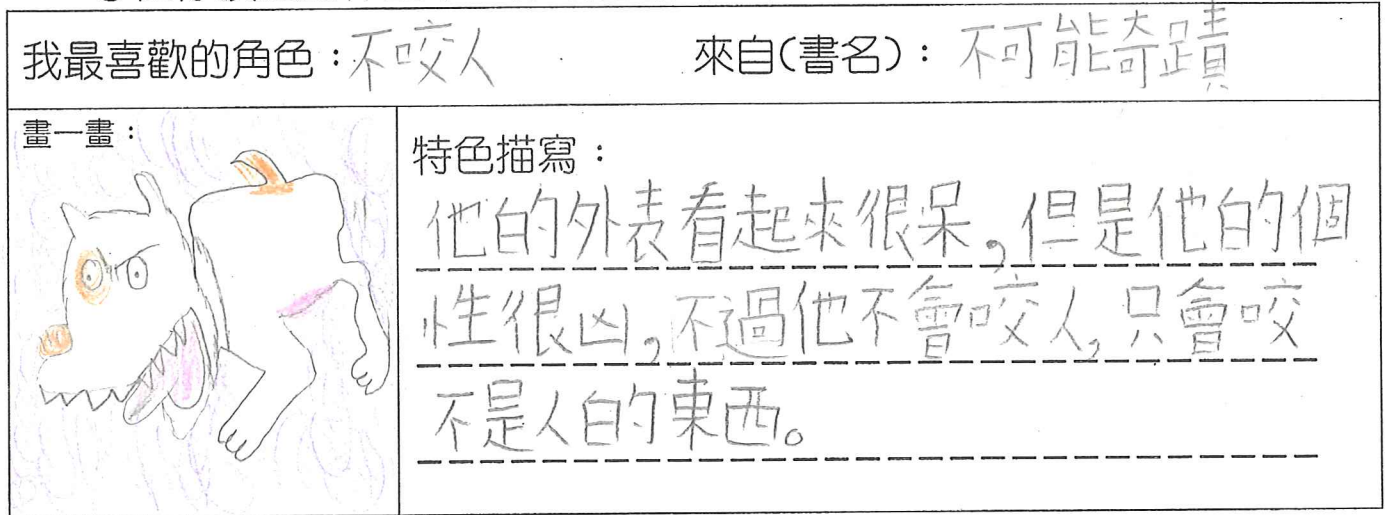 我最喜歡的角色：不咬人
來自(書名)：不可能奇蹟
畫一畫：
特色描寫：
他的外表看起來很呆，但是他的個
性很凶，不過他不會咬人，只會咬
不是人的東西。